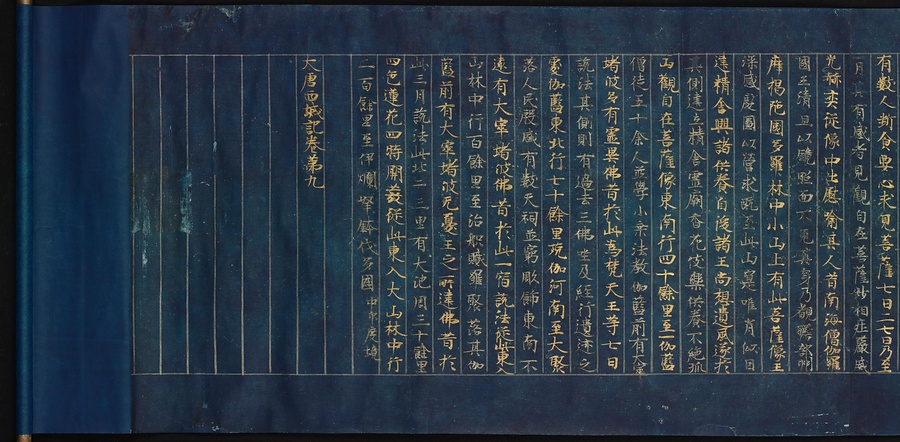 有數人斷食要心求見菩薩七日二七日乃至
一月其有感者見觀自在菩薩妙相莊嚴威
光赫奕從像中出慰喻其人昔南海僧伽羅
國王清旦以鏡照面不見其身乃覩贍部洲
摩揭陀國多羅林中小山上有此菩薩像王
深感慶圖以營求既至此山寔唯肖似因
建精舍興諸供養自後諸王尚想遺風遂於
其側建立精舍靈廟香花伎樂供養不絕孤
山觀自在菩薩像東南行四十餘里至一伽藍
僧徒五十余人並學小乘法教伽藍前有大窣
堵波多有靈異佛昔於此為梵天王等七日
說法其側則有過去三佛坐及經行遺迹之
處伽藍東北行七十餘里殑伽河南至大聚
落人民殷盛有數天祠並窮彫飾東南不
遠有大窣堵波佛昔於此一宿說法從此東入
山林中行百餘里至治般膩羅聚落其伽
藍前有大窣堵波无憂王之所建佛昔於
此三月說法此北二三里有大池周三十餘里
四色蓮花四時開蘂從此東入大山林中行
二百餘里至伊爛拏鉢伐多國中印度境
大唐西域記卷第九